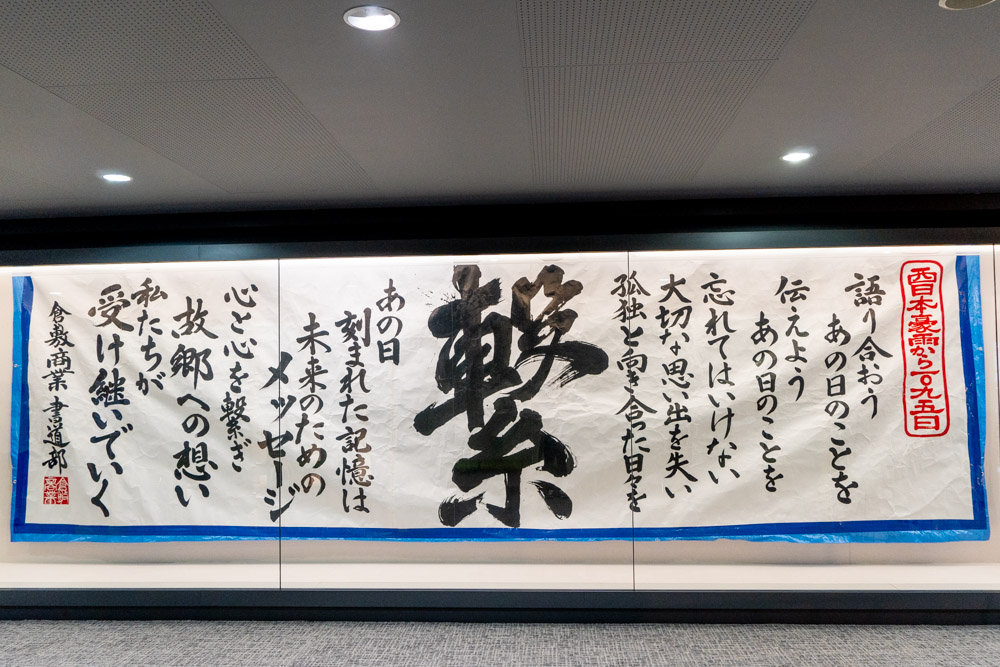 西日本豪雨から一〇九五日
語り合おう
あの日のことを
伝えよう
あの日のことを
忘れてはいけない
大切な思い出を失い
孤独と向き合った日々を
繋
あの日
刻まれた記憶は
未来のための
メッセージ
心と心を繋ぎ
故郷への想い
私たちが
受け継いでいく
倉敷商業 書道部